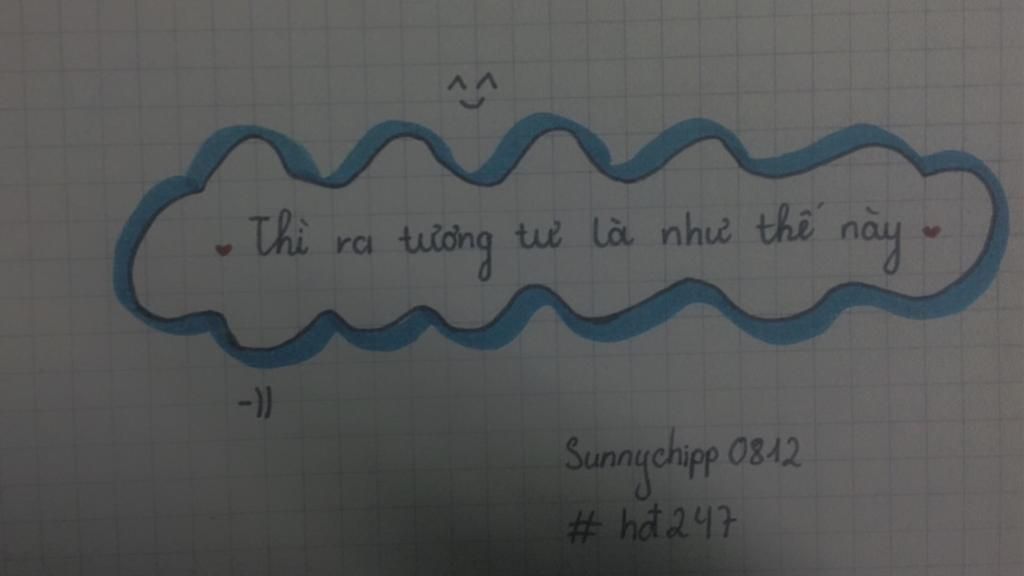 ^^
Thì ra tương tư là như thế này
-))
Sunnychipp 0812
# hđt 247